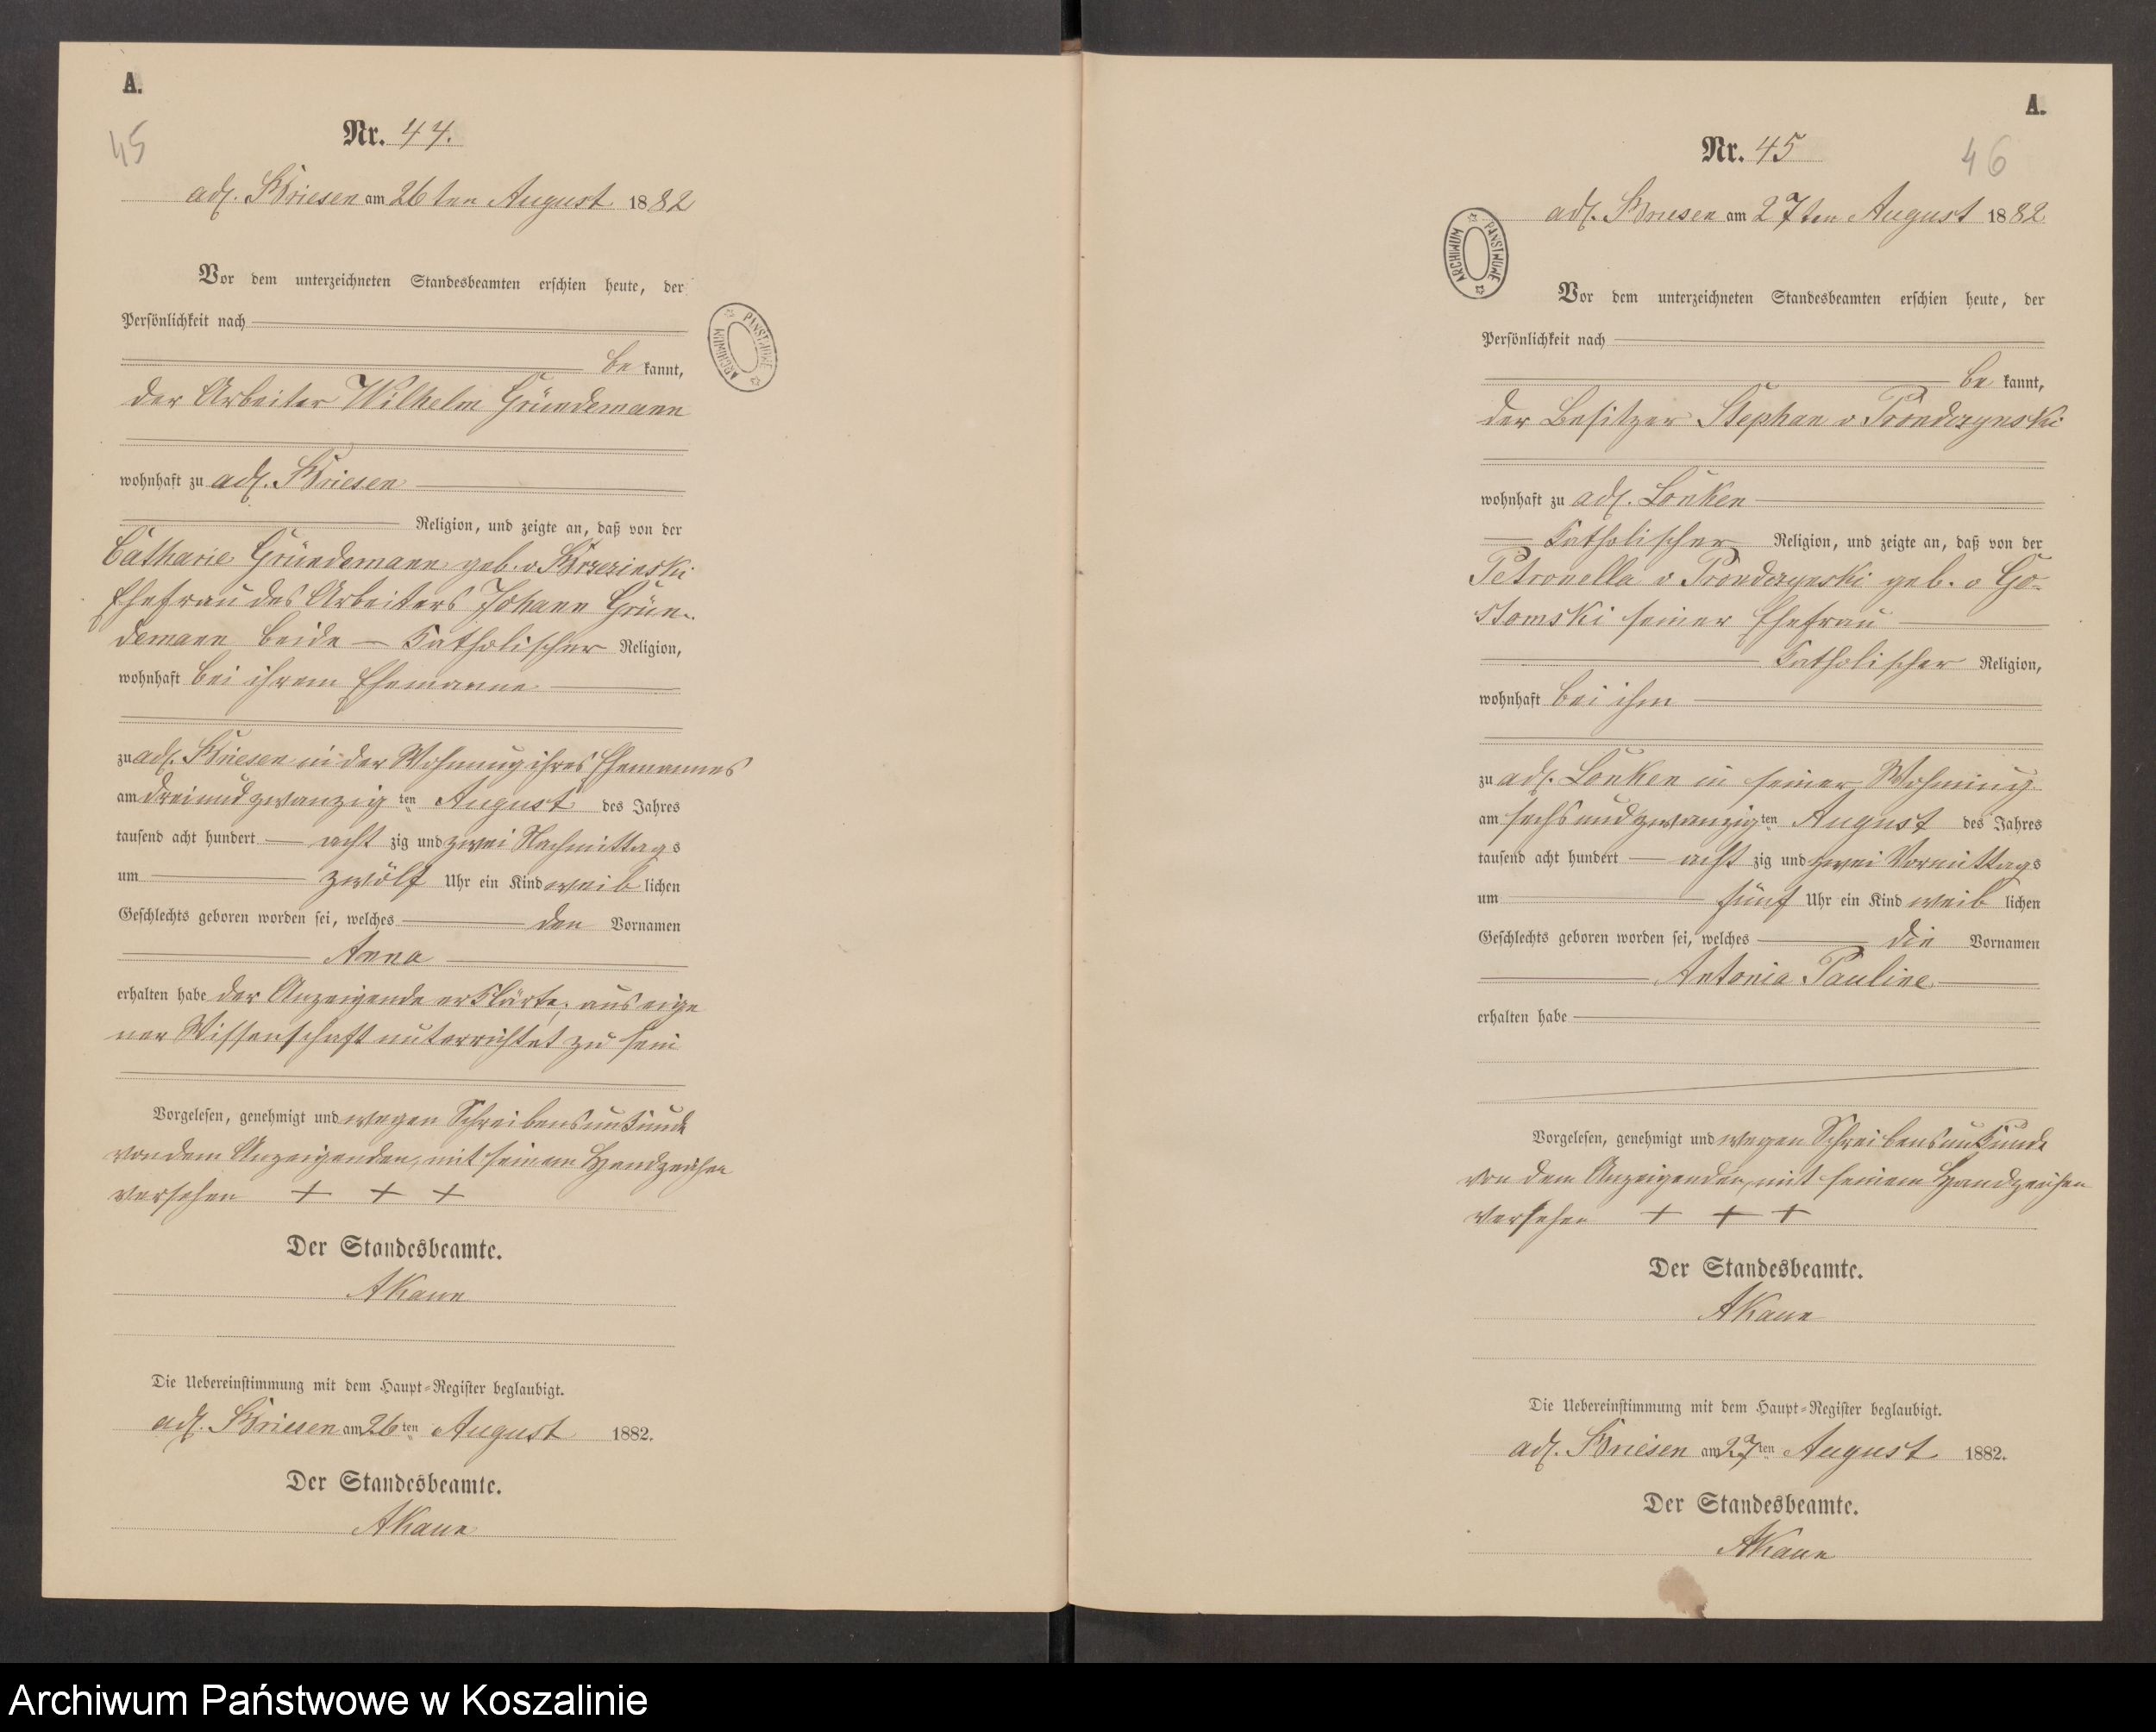 A.
45
Nr. 44.
adl. Briesen am 26ten August 1882
Vor dem unterzeichneten Standesbeamten erschien heute, der
Persönlichkeit nach
be kannt,
der Arbeiter Wilhelm Gründemann
wohnhaft zu adl. Briesen
Religion, und zeigte an, daß von der
Catharie Gründemann geb. v
Ehefrau des Arbeiters Johann Grün-
demann beide — Katholischer Religion,
wohnhaft bei ihrem Ehemanne
zu adl. Briesen in der Wohnung ihres Ehemannes
am dreiundzwanzig ten August des Jahres
tausend acht hundert — acht zig und zwei Nachmittags
um zwölf Uhr ein Kind weib lichen
Geschlechts geboren worden sei, welches den Vornamen
Anna
erhalten habe der Anzeigende erklärte, aus eige
ner Wissenschaft unterrichtet zu sein
Vorgelesen, genehmigt und wegen Schreibensunkunde
von dem Anzeigenden, mit seinem Handzeichen
versehen + + +
Der Standesbeamte.
Die Uebereinstimmung mit dem Haupt-Register beglaubigt.
adl. Briesen am 26 ten August 1882.
Der Standesbeamte.
A.
46
Nr. 45
adl. Briesen am 27ten August 1882
Vor dem unterzeichneten Standesbeamten erschien heute, der
Persönlichkeit nach
be kannt,
der Besitzer Stephan v Prondzynski
wohnhaft zu adl. Lonken
Katholischer Religion, und zeigte an, daß von der
Petronella v Prondzynski geb. v Go-
stomski seiner Ehefrau
Katholischer Religion,
wohnhaft bei ihm
zu adl. Lonken in seiner Wohnung
am sechsundzwanzig ten August des Jahres
tausend acht hundert — acht zig und zwei Vormittags
um fünf Uhr ein Kind weib lichen
Geschlechts geboren worden sei, welches die Vornamen
Antonia Pauline
erhalten habe
Vorgelesen, genehmigt und wegen Schreibensunkunde
von dem Anzeigenden, mit seinem Handzeichen
versehen + + +
Der Standesbeamte.
Die Uebereinstimmung mit dem Haupt-Register beglaubigt.
adl. Briesen am 27 ten August 1882.
Der Standesbeamte.
ARCHIWUM PAŃSTWOWE
ARCHIWUM PAŃSTWOWE
Archiwum Państwowe w Koszalinie